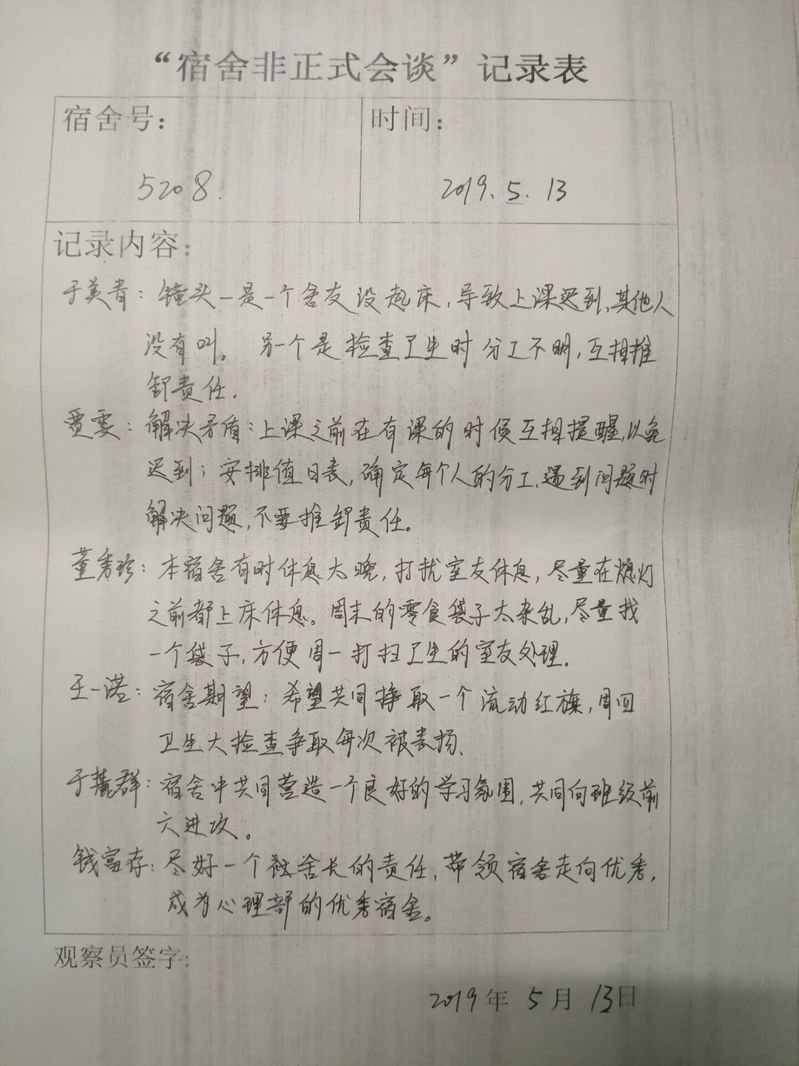 “宿舍非正式会谈”记录表
宿舍号：
时间：
5208.
2019.5.13
记录内容：
于美青：镜头一是一个舍友没起床，导致上课迟到，其他人
没有叫。 另一个是检查卫生时分工不明，互相推
卸责任.
贾雯：解决矛盾：上课之前在有课的时候互相提醒，以免
迟到；安排值日表，确定每个人的分工，遇到问题时
解决问题，不要推卸责任。
董秀珍：本宿舍有时休息太晚，打扰室友休息，尽量在熄灯
之前都上床休息。周末的零食袋子太杂乱，尽量找
一个袋子，方便周一打扫卫生的室友处理.
王一诺：宿舍期望：希望共同挣取一个流动红旗，周四
卫生大检查争取每次被表扬、
于麓群：宿舍中共同营造一个良好的学习氛围，共同向班级前
六进攻。
钱富存：尽好一个宿舍长的责任，带领宿舍走向优秀，
成为心理部的优秀宿舍。
观察员签字：
2019年5月13日